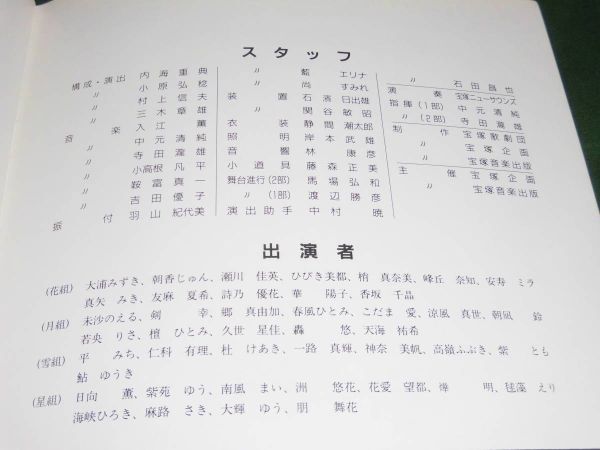 スタッフ
構成・演出 内海重典
〃 小原弘稔
〃 村上信夫
〃 三木章雄
音楽 入江薫
〃 中元清純
〃 寺田瀧雄
〃 小高根凡平
〃 鞍富真一
〃 吉田優子
振付 羽山紀代美
〃 藍エリナ
〃 尚すみれ
装置 石濱日出雄
〃 関谷敏昭
衣装 静間潮太郎
照明 岸本武雄
音響 林康彦
小道具 藤森正美
舞台進行(2部) 馬場弘和
〃(1部) 渡辺勝彦
演出助手 中村暁
〃 石田昌也
演奏 宝塚ニューサウンズ
指揮(1部) 中元清純
〃(2部) 寺田瀧雄
制作 宝塚歌劇団
〃 宝塚企画
〃 宝塚音楽出版
主催 宝塚企画
〃 宝塚音楽出版
出演者
(花組) 大浦みずき、朝香じゅん、瀬川 佳英、ひびき美都、梢 真奈美、峰丘 奈知、安寿 ミラ
真矢 みき、友麻 夏希、詩乃 優花、華 陽子、香坂 千晶
(月組) 未沙のえる、剣 幸、郷 真由加、春風ひとみ、こだま 愛、涼風 真世、朝凪 鈴
若央 りさ、檀 ひとみ、久世 星佳、轟 悠、天海 祐希
(雪組) 平 みち、仁科 有理、杜 けあき、一路 真輝、神奈 美帆、高嶺ふぶき、紫 とも
鮎 ゆうき
(星組) 日向 薫、紫苑 ゆう、南風 まい、洲 悠花、花愛 望都、燁 明、毬藻 えり
海峡ひろき、麻路 さき、大輝 ゆう、朋 舞花